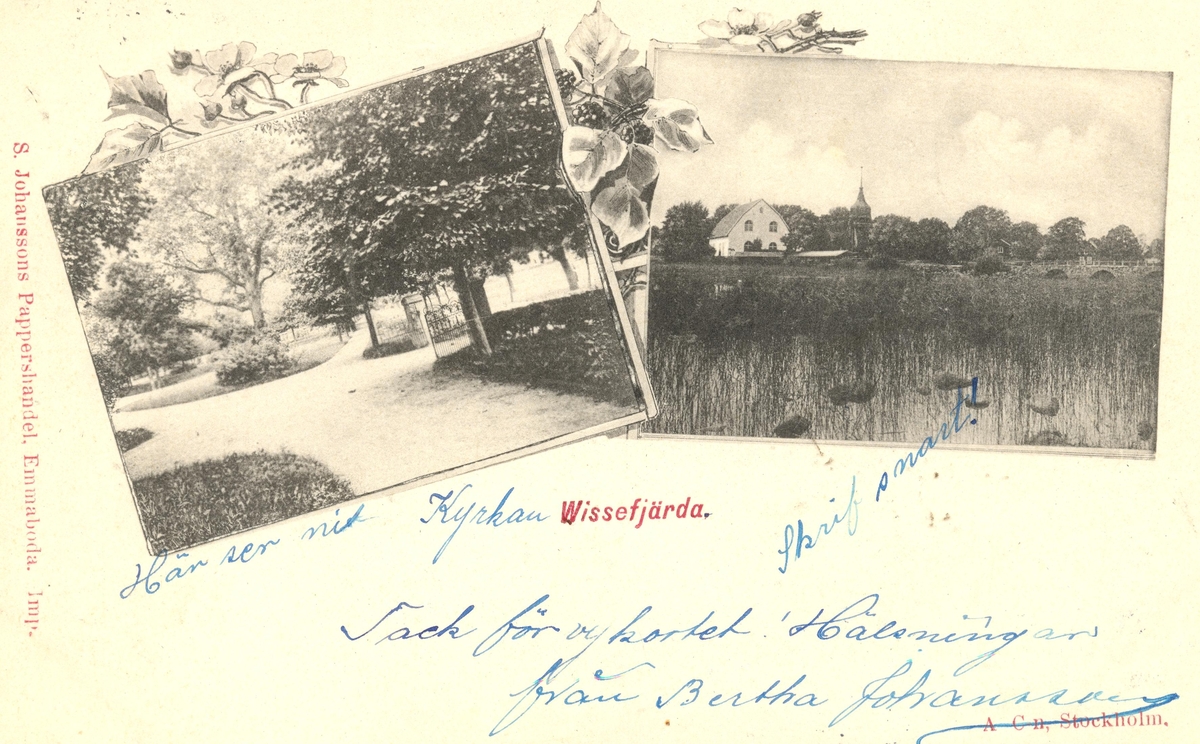 S. Johanssons Pappershandel, Emmaboda. Imp.
Här ser ni Kyrkan Wissefjärda.
Skrif snart!
Tack för vykortet! Hälsningar
från Bertha Johansson
A C n, Stockholm.